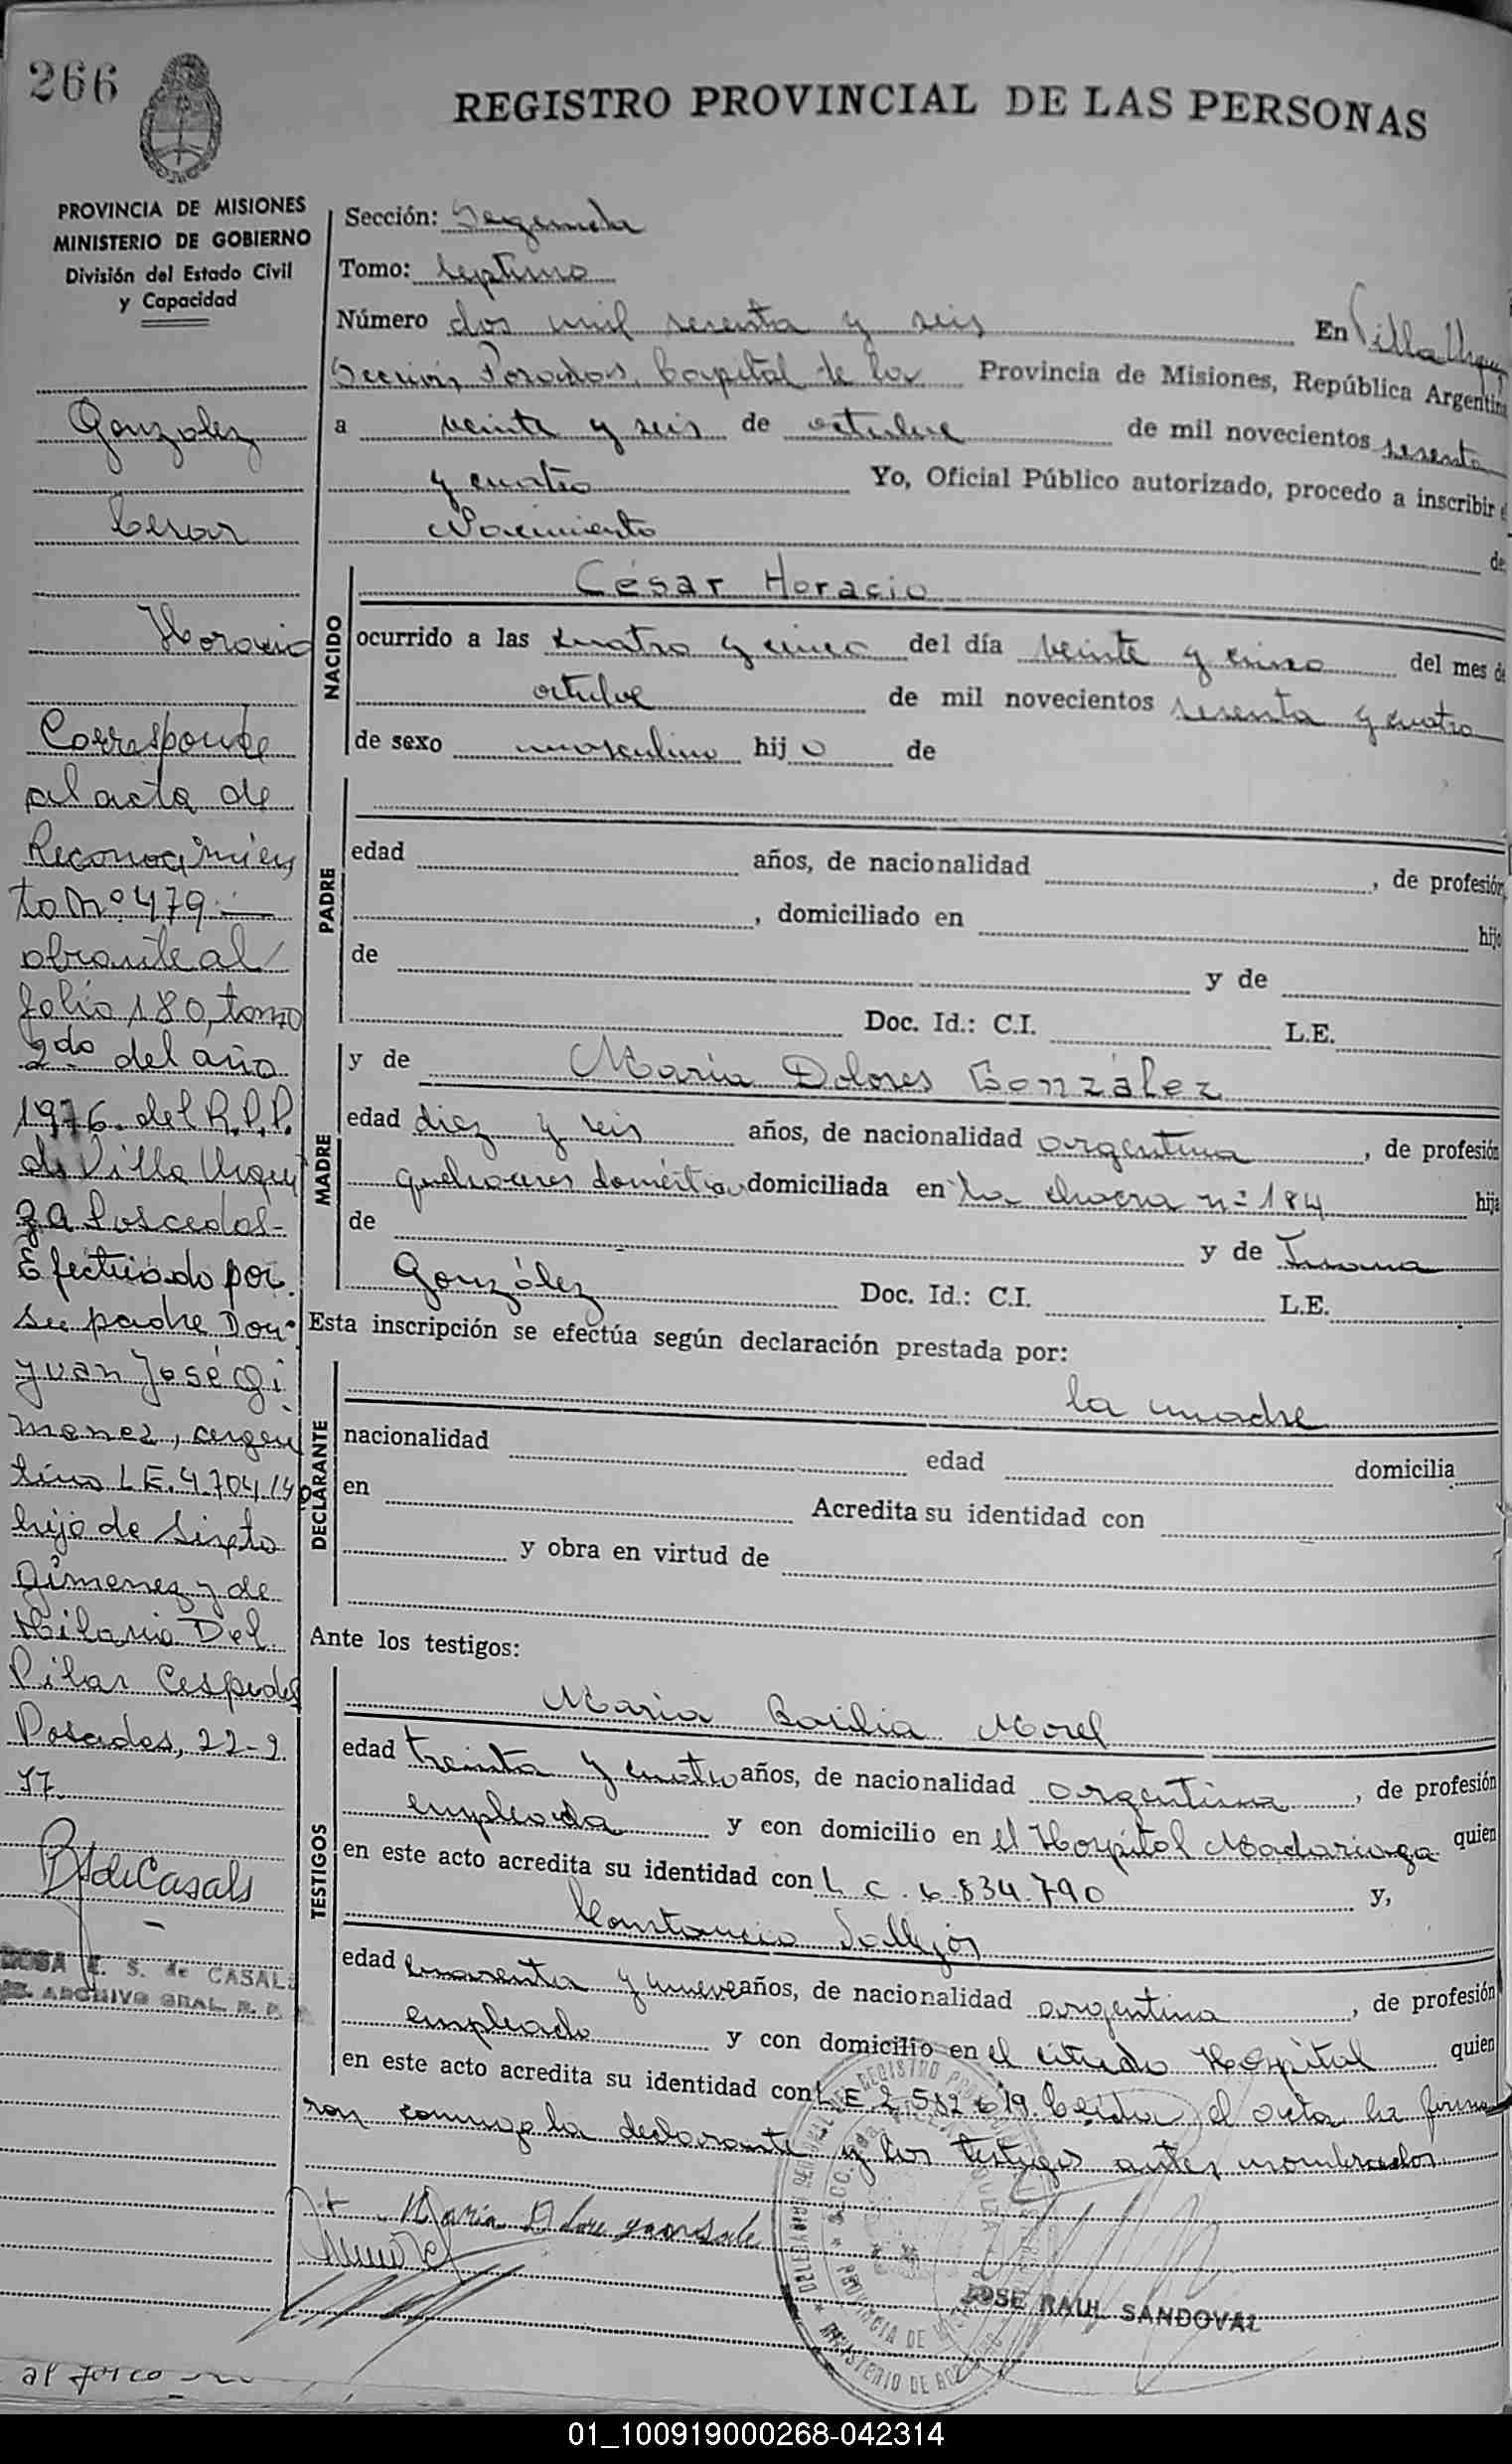 266
REGISTRO PROVINCIAL DE LAS PERSONAS
PROVINCIA DE MISIONES
MINISTERIO DE GOBIERNO
División del Estado Civil
y Capacidad
Gonzalez
Cesar
Horacio
Corresponde
al acta de
Reconocimien
to Nº 479
obrante al
folio 180, tomo
2do del año
1976 del R.P.P.
de Villa Urqui
za Poscedas
Efectuado por
su padre Don
Juan José Gi
menez, argen
tino L.E. 4.704.14
hijo de Sixto
Gimenez y de
Hilaria Del
Pilar Cespedes
Posadas, 22-9
77.
BSdeCasals
ROSA E. S. de CASALS
ARCHIVO GRAL. R. P.
Sección: Segunda
Tomo: Septimo
Número dos mil sesenta y seis En Villa Urquiza
Sección Posadas, Capital de la Provincia de Misiones, República Argentina
a veinte y seis de octubre de mil novecientos sesenta
y cuatro Yo, Oficial Público autorizado, procedo a inscribir el
Nacimiento de
NACIDO
César Horacio
ocurrido a las cuatro y cinco del día veinte y cinco del mes de
octubre de mil novecientos sesenta y cuatro
de sexo masculino hijo de
PADRE
edad años, de nacionalidad , de profesión
, domiciliado en hijo
de y de
Doc. Id.: C.I. L.E.
MADRE
y de María Dolores González
edad diez y seis años, de nacionalidad argentina , de profesión
quehaceres domésticos domiciliada en la chacra nº 184 hija
de y de
González Doc. Id.: C.I. L.E.
Esta inscripción se efectúa según declaración prestada por:
DECLARANTE
la madre
nacionalidad edad domicilia
en Acredita su identidad con
y obra en virtud de
Ante los testigos:
TESTIGOS
María Basilia Morel
edad treinta y cuatro años, de nacionalidad argentina , de profesión
empleada y con domicilio en el Hospital Madariaga quien
en este acto acredita su identidad con L C. 6.834.790 y,
Constancio Vallejos
edad cuarenta y nueve años, de nacionalidad argentina , de profesión
empleado y con domicilio en el citado Hospital quien
en este acto acredita su identidad con L E 2.582.619. Leída el acta la firma
ron conmigo la declarante y los testigos antes nombrados
María Dlore gonsale
JOSE RAUL SANDOVAL
01_100919000268-042314